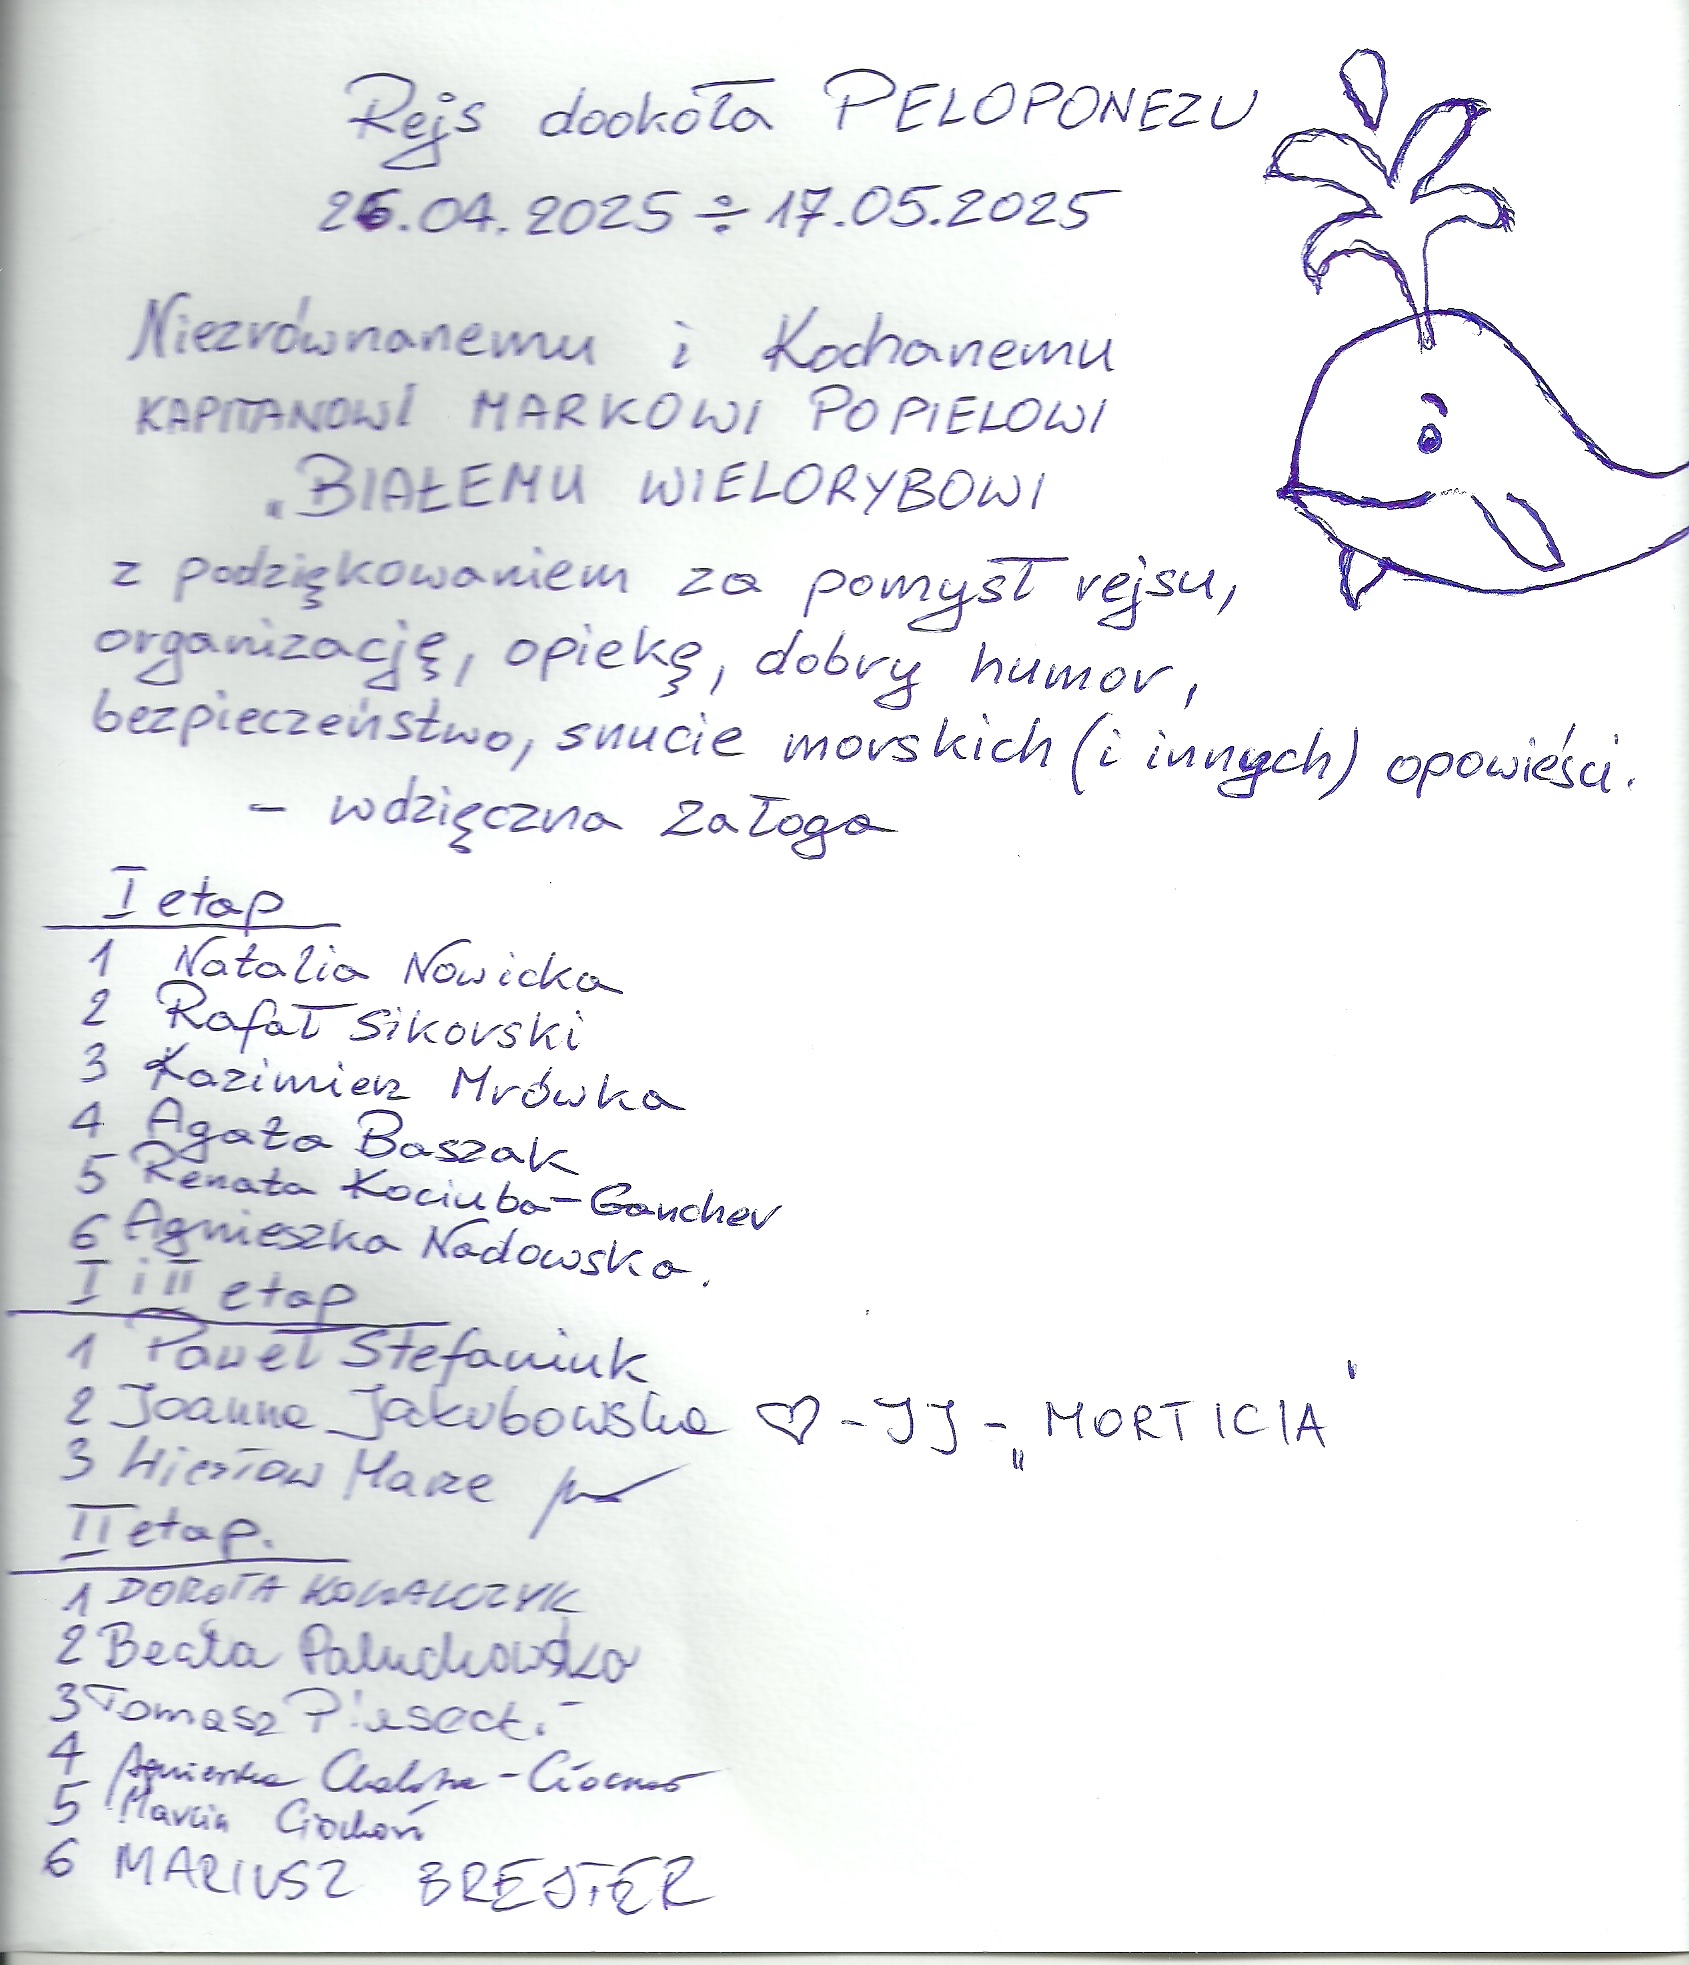 Rejs dookoła PELOPONEZU
26.04.2025 ÷ 17.05.2025
Niezrównanemu i Kochanemu
KAPITANOWI MARKOWI POPIELOWI
„BIAŁEMU WIELORYBOWI
z podziękowaniem za pomysł rejsu,
organizację, opiekę, dobry humor,
bezpieczeństwo, snucie morskich (i innych) opowieści.
- wdzięczna załoga
I etap
1 Natalia Nowicka
2 Rafał Sikorski
3 Kazimierz Mrówka
4 Agata Baszak
5 Renata Kociuba-Ganchev
6 Agnieszka Nadowska.
I i II etap
1 Paweł Stefaniuk
2 Joanna Jakubowska ♡ - JJ - „MORTICIA"
3 Wiesław
II etap.
1 DOROTA KOWALCZYK
2 Beata Paluchowska
3 Tomasz Piasecki
4 Agnieszka
5 Marcin Ciochoń
6 MARIUSZ BREJTER